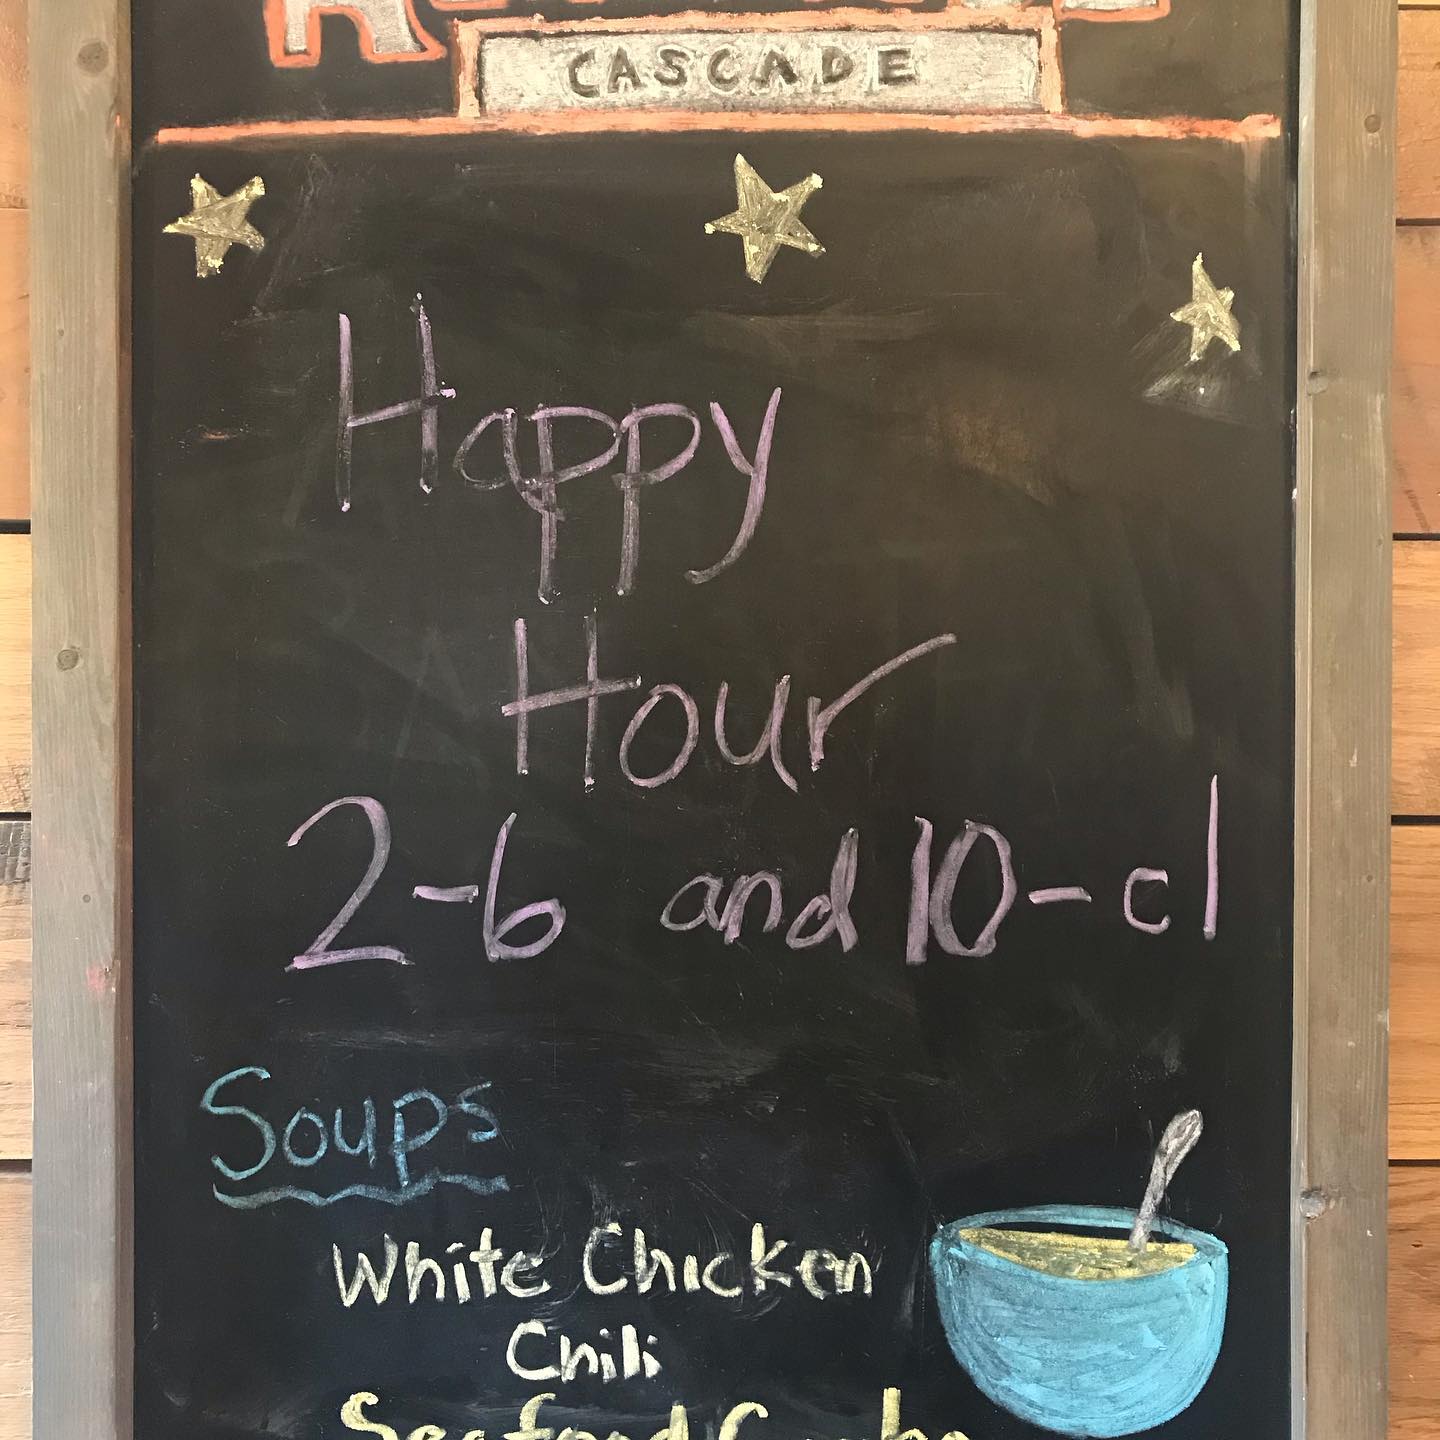 CASCADE
Happy
Hour
2-6 and 10-cl
Soups
White Chicken
Chili
Seafood Gumbo